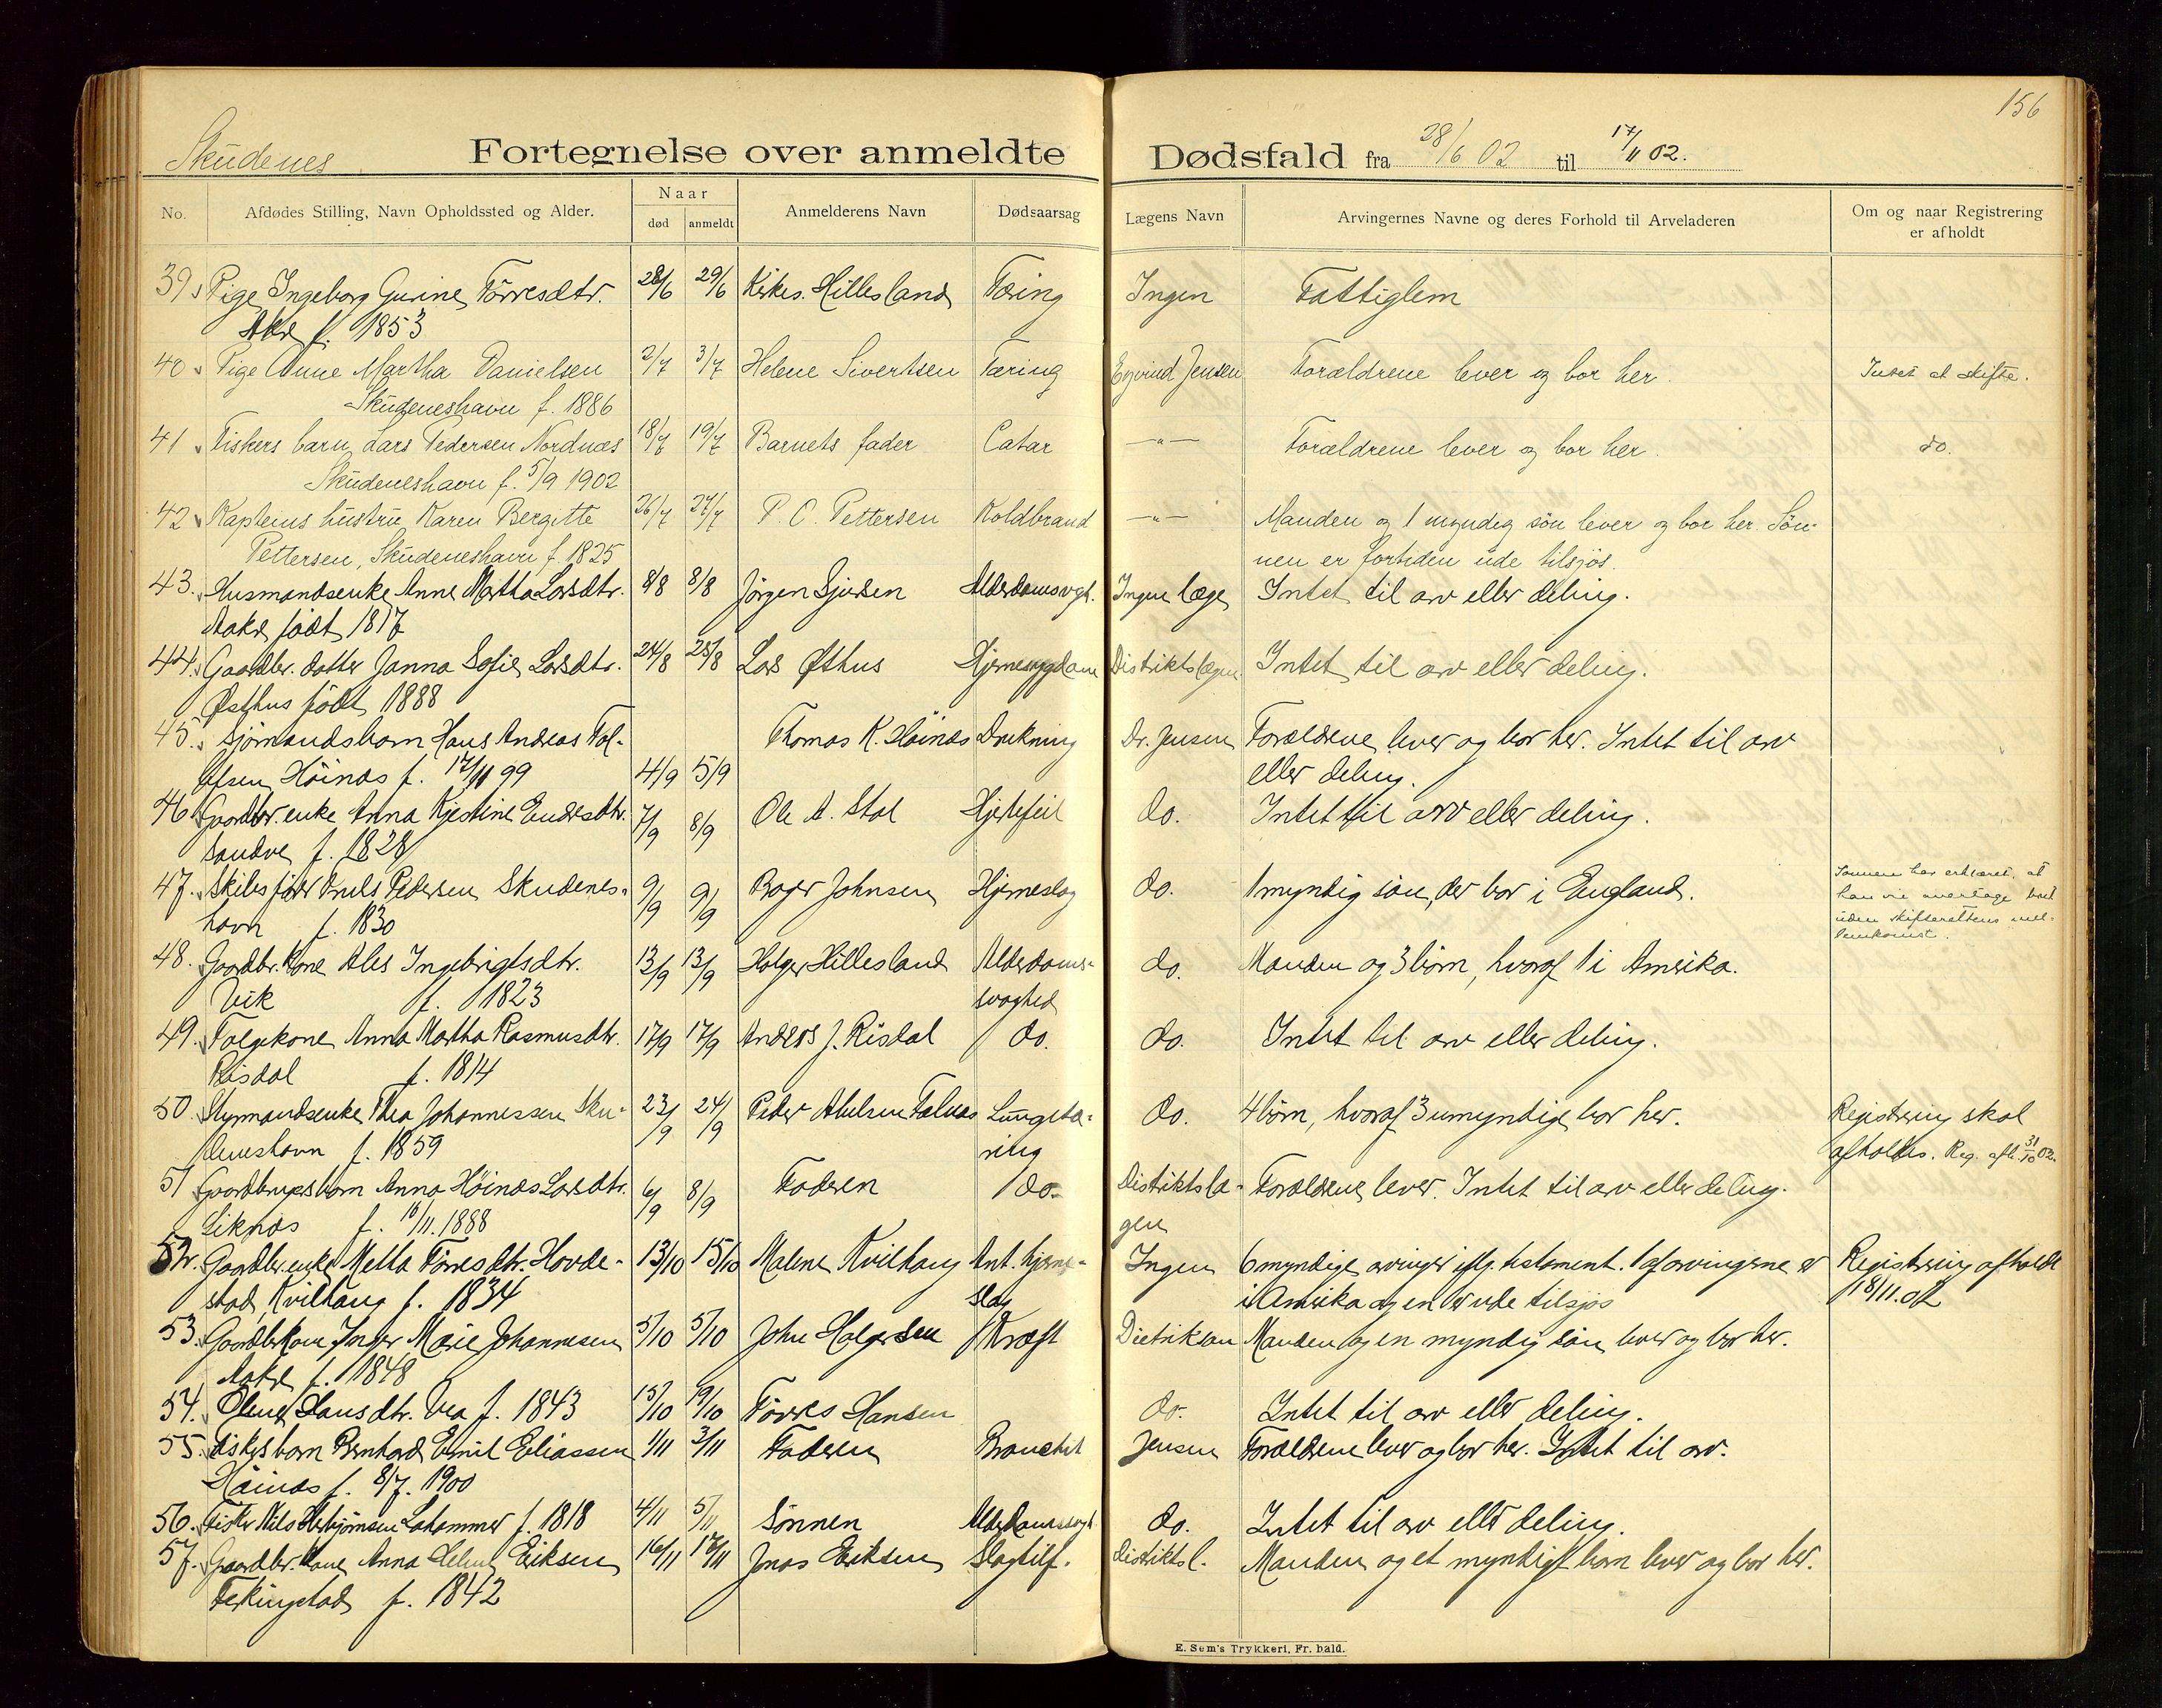 156
Skudenes Fortegnelse over anmeldte Dødsfald fra 28/6 02 til 17/11 02.
No. Afdødes Stilling, Navn Opholdssted og Alder. Naar død anmeldt Anmelderens Navn Dødsaarsag Lægens Navn Arvingernes Navne og deres Forhold til Arveladeren Om og naar Registrering er afholdt
39. Pige Ingeborg Gurine Törresdtr. 28/6 29/6 Kirkes. Hillesland Tæring Ingen Fattiglem
Akre f. 1853
40 Pige Anne Martha Danielsen 2/7 3/7 Helene Sivertsen Tæring Eyvind Jensen Forældrene lever og bor her. Intet at skifte.
Skudeneshavn f. 1886
41 Fiskers barn Lars Pedersen Nordnæs 18/7 19/7 Barnets fader Catar —"— Forældrene lever og bor her. do.
Skudeneshavn f. 5/9 1902
42 Kapteins hustru Karen Bergitte 26/7 27/7 P. C. Pettersen Koldbrand —"— Manden og 1 myndig sön lever og bor her. Sön-
Pettersen, Skudeneshavn f. 1825 nen er fortiden ude tilsjös.
43. Husmandsenke Anne Martha Larsdtr. 8/8 8/8 Jörgen Sjursen Alderdomsvgh. Ingen læge Intet til arv eller deling.
Aakre født 1817
44. Gaardbr. datter Janna Sofie Larsdtr. 24/8 25/8 Lars Østhus Hjernesygdom Distriktslægen Intet til arv eller deling.
Østhus født 1888
45. Sjömandsbarn Hans Andreas Tol- Thomas K. Höinæs Drukning Dr. Jensen Forældrene lever og bor her. Intet til arv
lefsen Höinæs f. 17/11 99 4/9 5/9 eller deling.
46 Gaardbr. enke Anna Kjestine Endresdtr. 7/9 8/9 Ole A. Stol Hjertefeil do. Intet til arv eller deling.
Sandve f. 1828
47. Skibsfører Pedersen Skudenes- 9/9 9/9 Roger Johnsen Hjerneslag do. 1 myndig sön, der bor i England. Sonnen har erklæret, at
havn f. 1830 han vil overtage boet
uden skifterettens mel-
lemkomst.
48. Gaardbr. kone Ales Ingebrigtsdtr. 13/9 13/9 Holger Hillesland Alderdoms- do. Manden og 3 börn, hvoraf 1 i Amerika.
Vik f. 1823 svaghed
49. Folgekone Anna Martha Rasmusdtr. 17/9 17/9 Anders J. Risdal do. do. Intet til arv eller deling.
Risdal f. 1814
50. Styrmandsenke Thea Johannessen Sku- 23/9 24/9 Peder Falnæs Lungetæ- do. 4 börn, hvoraf 3 umyndige bor her. Registrering skal
deneshavn f. 1859 ring afholdes. Reg. afh. 31/10 02.
51 Gaardbrugsbarn Anna Höinæs Larsdtr. 6/9 8/9 Faderen do. Distriktslæ- Forældrene lever. Intet til arv eller deling.
Liknæs f. 16/11. 1888 gen
52. Gaardbr. enke Metha Törresdtr. Hovde- 13/10 15/10 Malene Kvilhaug Ant. hjerne- Ingen 6 myndige arvinger iflg. testament. 1 af arvingerne er Registrering afholdt
stad, Kvilhaug f. 1834 slag i Amerika og en er ude tilsjös 18/11. 02
53. Gaardbr. kone Inger Marie Johannesen 5/10 5/10 John Holgersen Kræft Dietrikson Manden og en myndig sön lever og bor her.
Aakre f. 1848
54. Olene Hansdtr. Vea f. 1843 15/10 19/10 Törres Hansen do. Intet til arv eller deling.
55. Fiskers barn Bernhard Emil Eliassen 1/11 3/11 Faderen Bronchit Jensen Forældrene lever og bor her. Intet til arv.
Höinæs f. 8/7. 1900
56. Fisker Nils Lahammer f. 1818 4/11 5/11 Sönnen Alderdomssvgh. do. Intet til arv eller deling.
57. Gaardbr. kone Anna Helene Eriksen 16/11 17/11 Jonas Eriksen Slagtilf. Distriktsl. Manden og et myndigt barn lever og bor her.
Ferkingstad f. 1842
E. Sem's Trykkeri, Fr. hald.